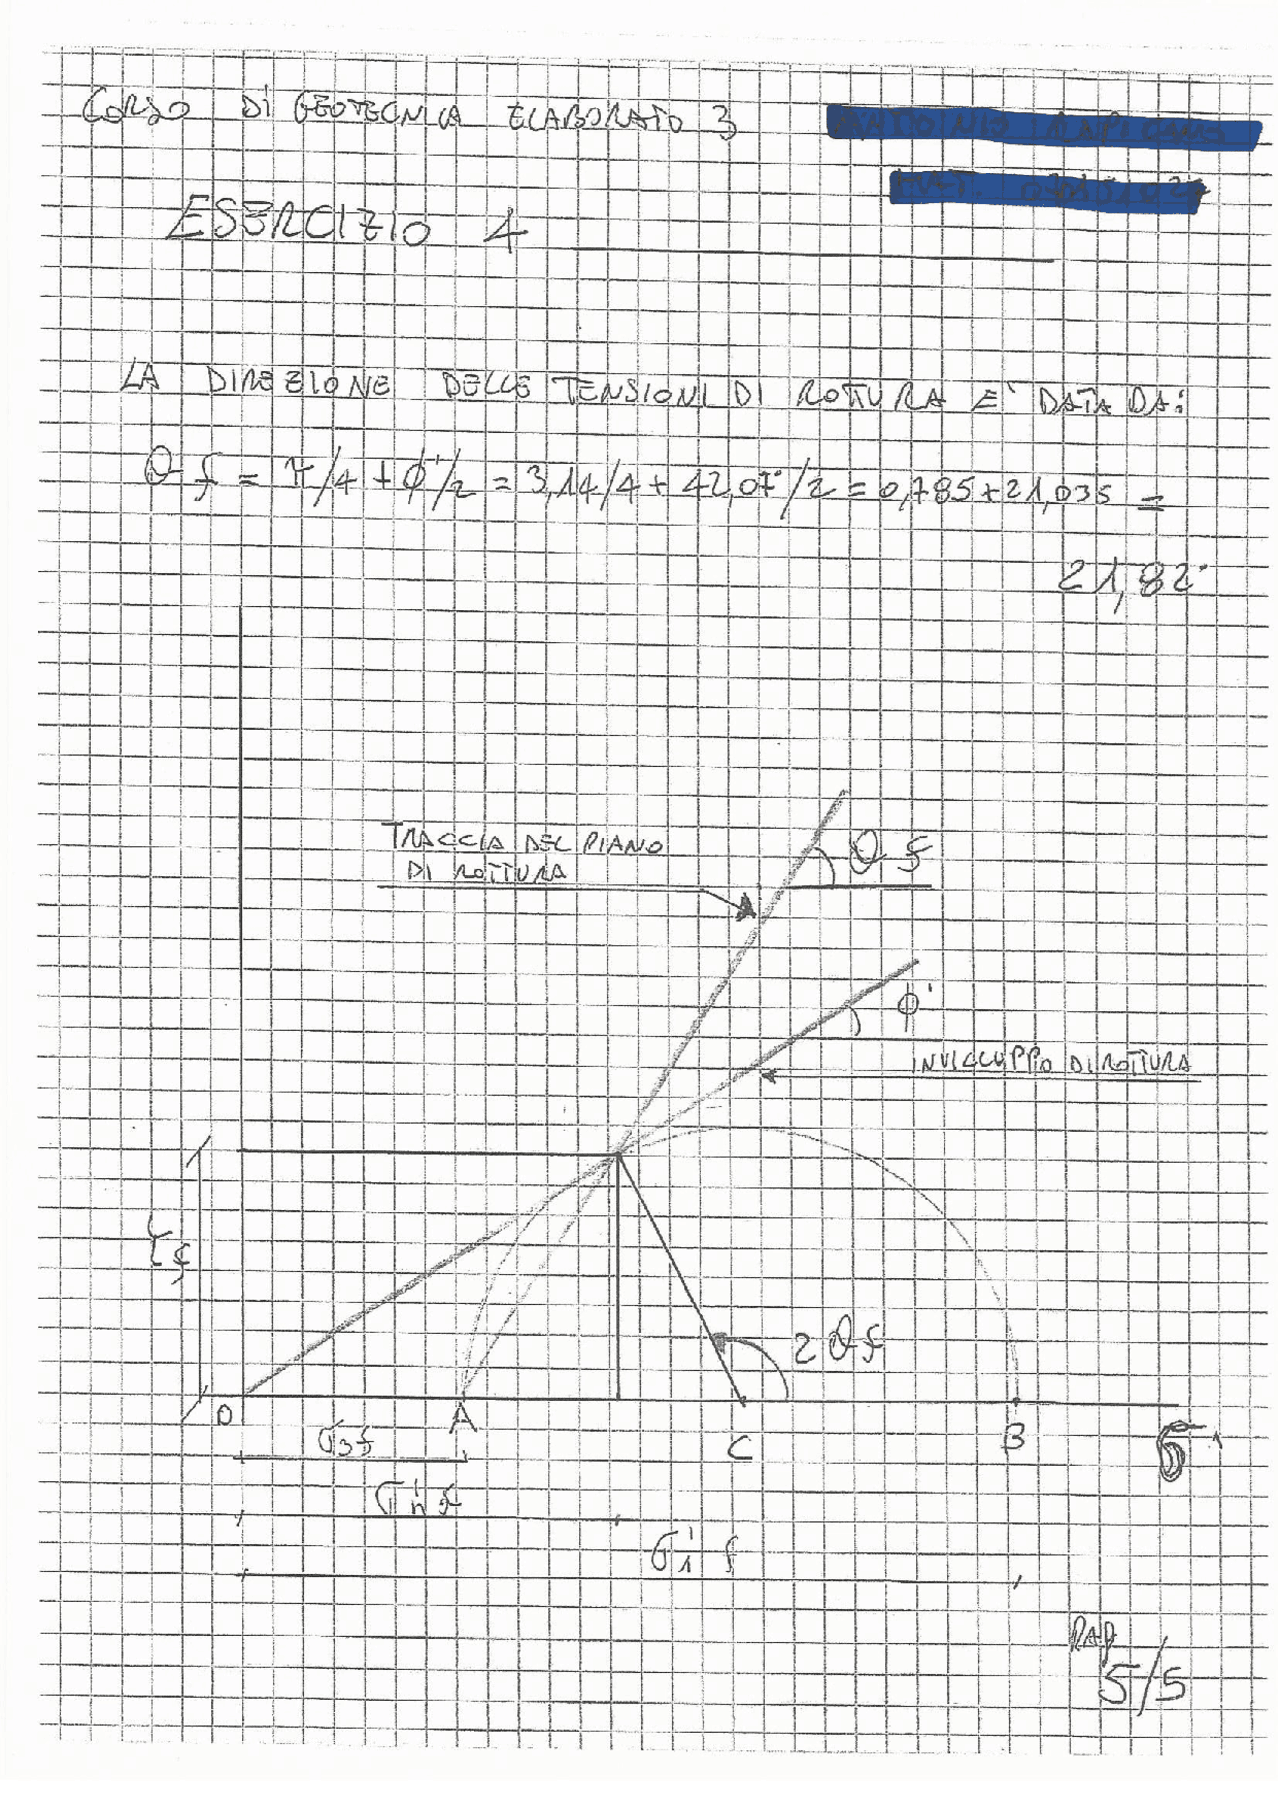 CORSO DI GEOTECNICA ELABORATO 3
ESERCIZIO 4
LA DIREZIONE DELLE TENSIONI DI ROTTURA E' DATA DA:
θf = π/4 + ϕ'/2 = 3,14/4 + 42,07°/2 = 0,785 + 21,035 =
21,82°
TRACCIA DEL PIANO
DI ROTTURA
θf
ϕ'
INVILUPPO DI ROTTURA
τf
2θf
O
A
C
B
σ'
σ3f
σ'nf
σ'1f
RAP
5/5